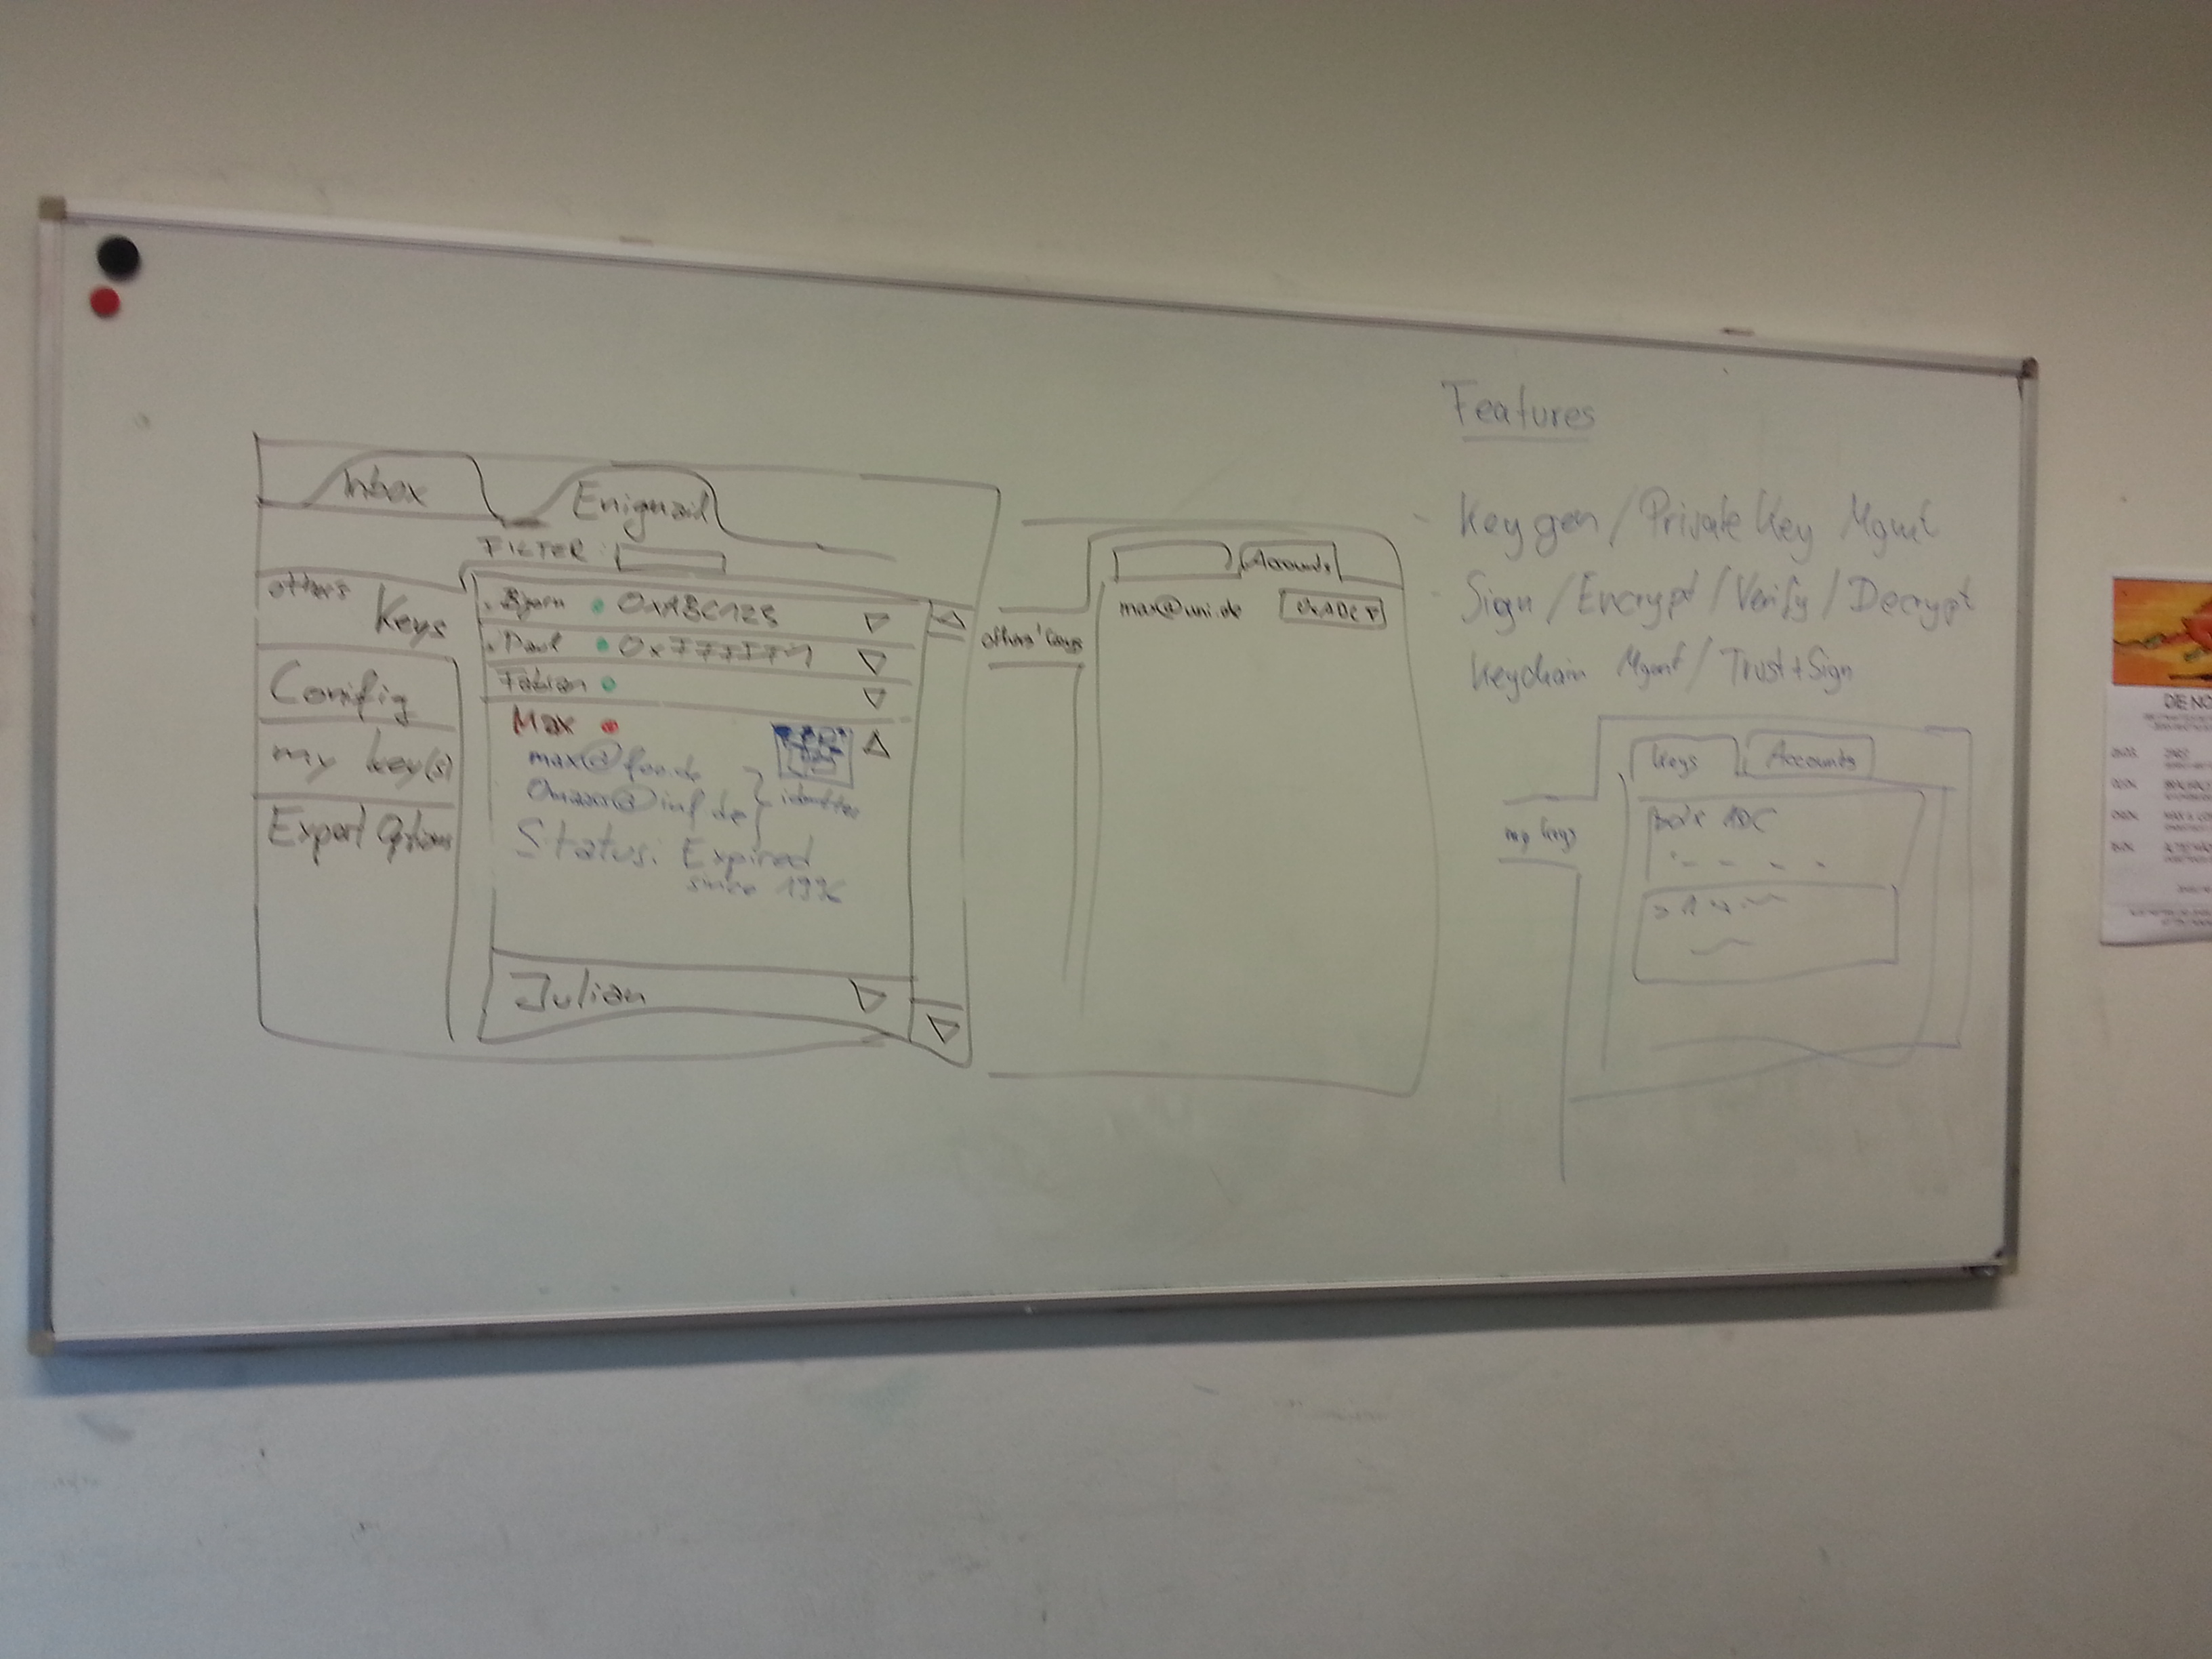 Inbox
Enigmail
FILTER:
others
Keys
Config
my key(s)
Export Options
Bjorn 0xABC123
Paul
Fabian
Max
max@foo.de
@inf.de
identities
Status: Expired
since 199
Julian
others' keys
Accounts
max@uni.de
Features
- Key gen / Private Key Mgmt
- Sign / Encrypt / Verify / Decrypt
Keychain Mgmt / Trust + Sign
Keys
Accounts
my keys
DE NO